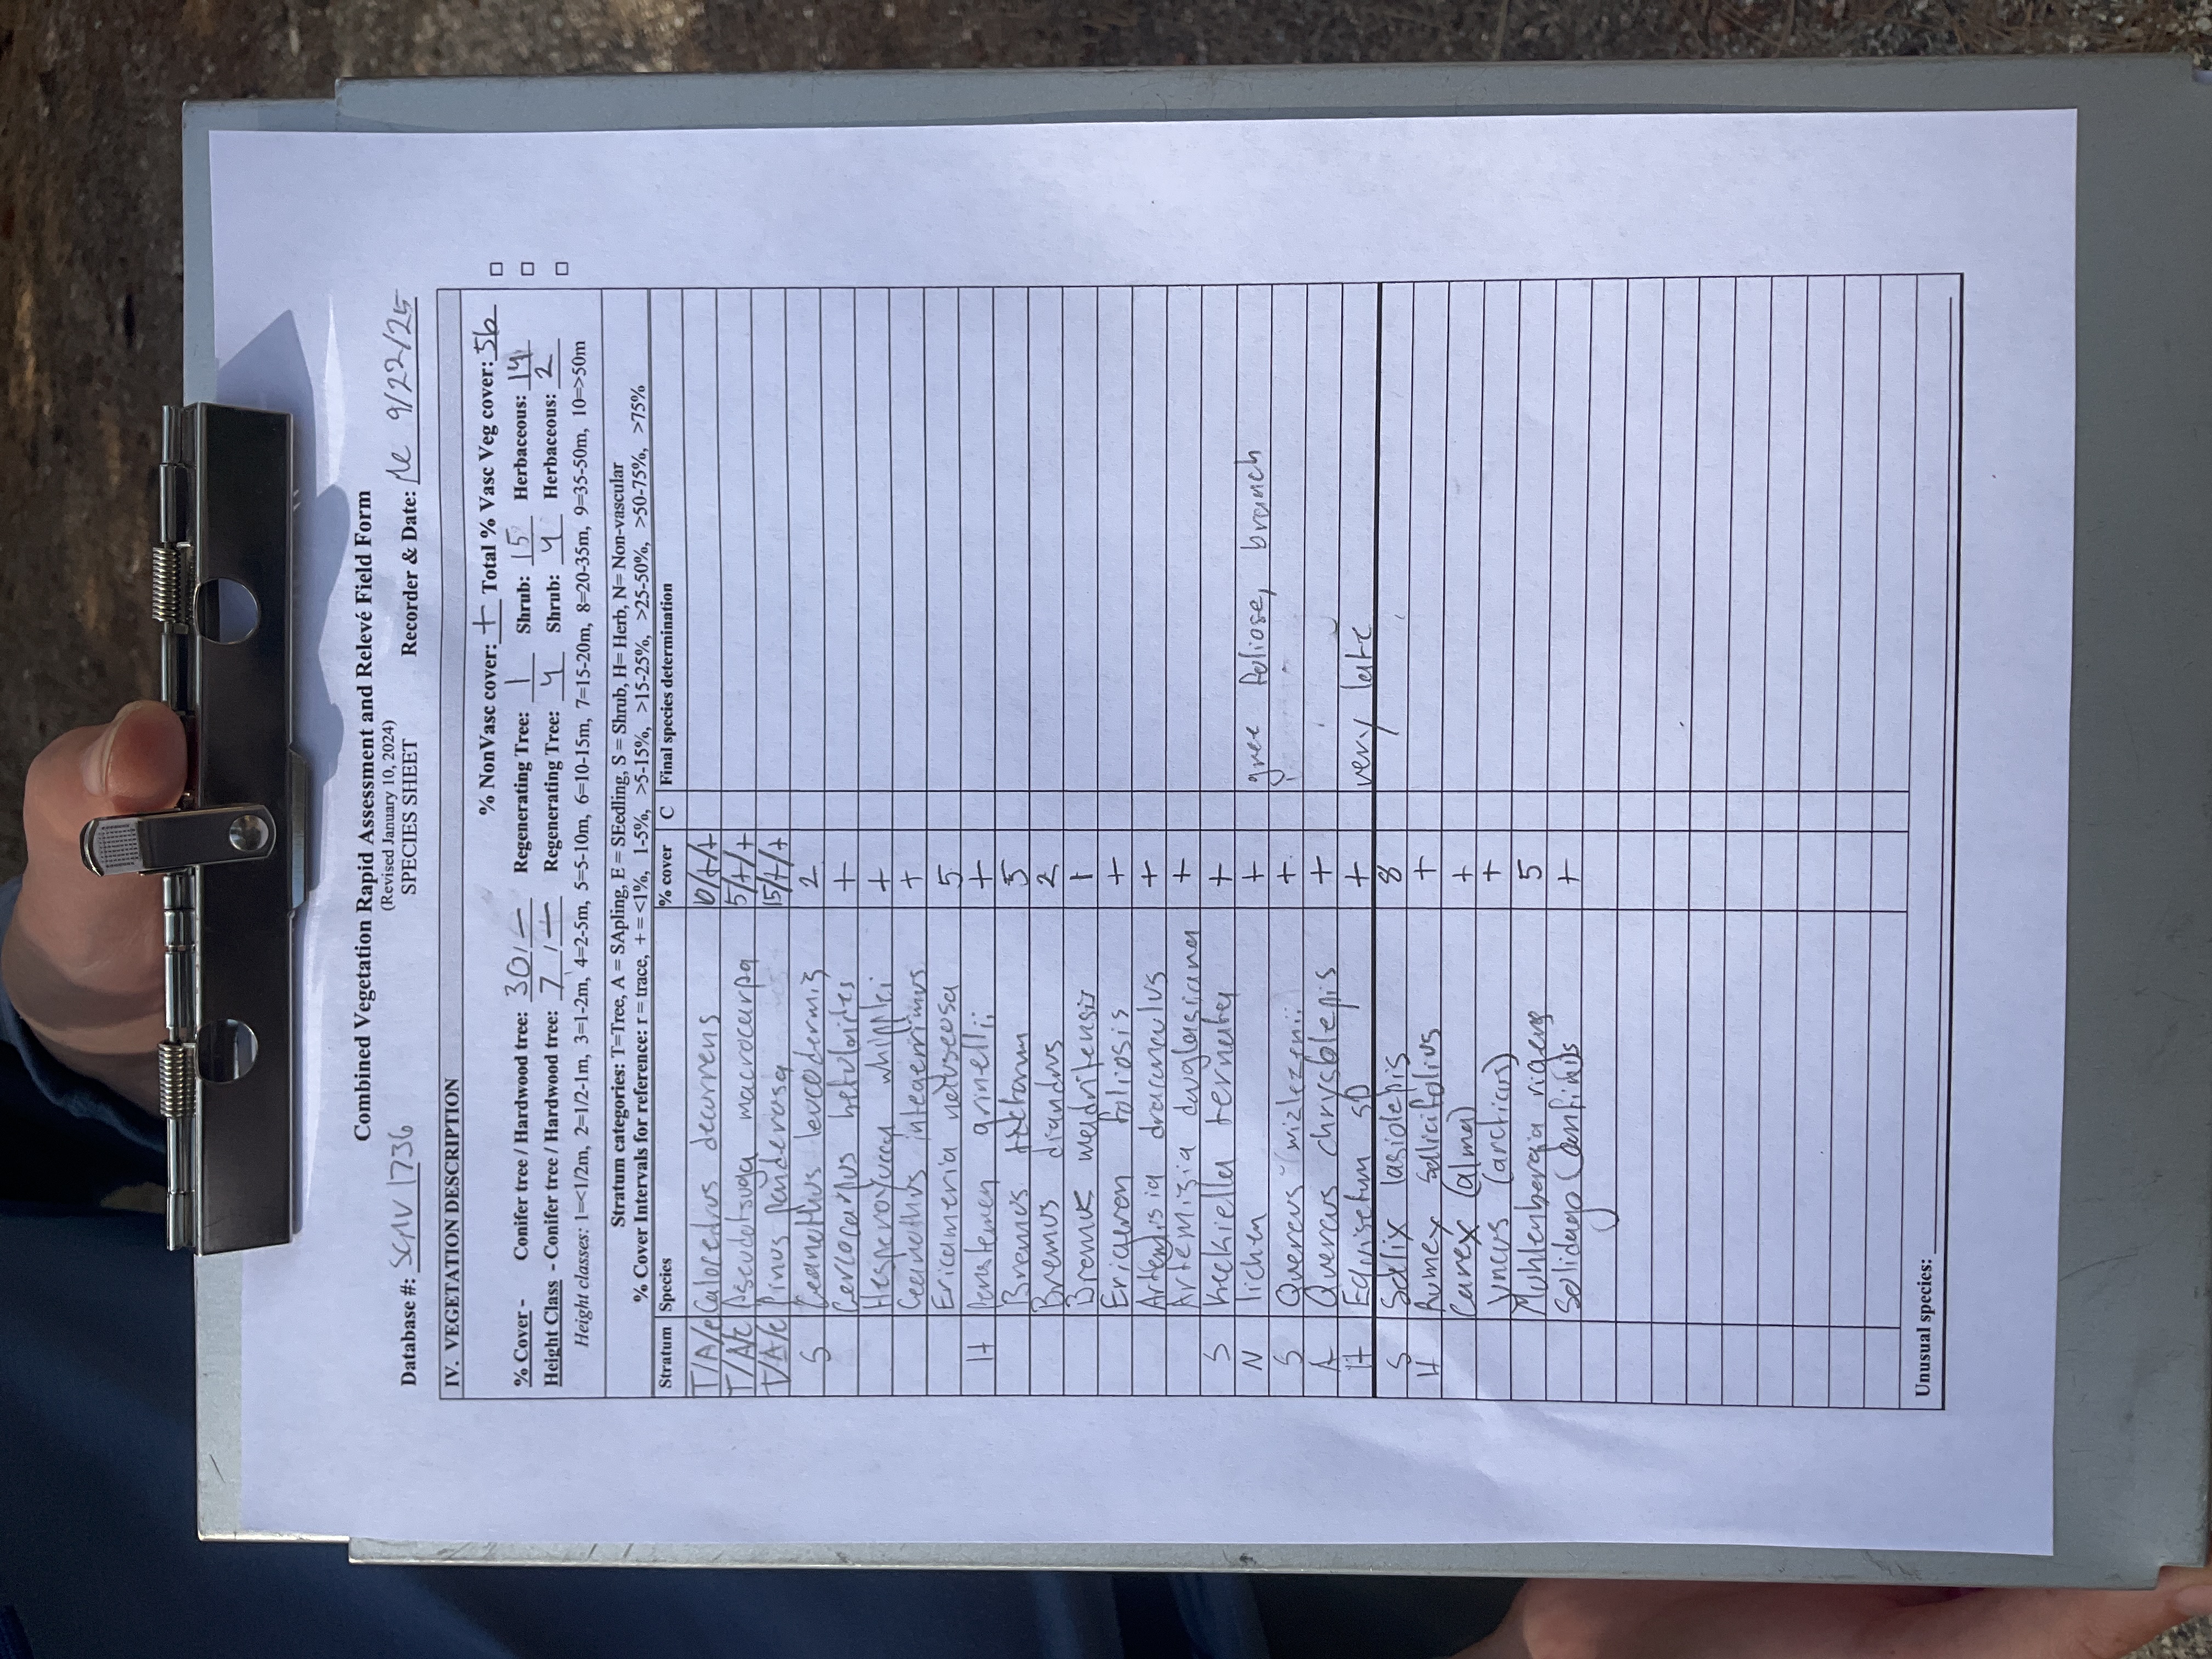 Combined Vegetation Rapid Assessment and Relevé Field Form
(Revised January 10, 2024)
SPECIES SHEET
Database #: SCMV 1736 Recorder & Date: 9/22/25
IV. VEGETATION DESCRIPTION
% NonVasc cover: + Total % Vasc Veg cover: 56
% Cover - Conifer tree / Hardwood tree: 30/- Regenerating Tree: 1 Shrub: 15 Herbaceous: 14
Height Class - Conifer tree / Hardwood tree: 7/- Regenerating Tree: 4 Shrub: 4 Herbaceous: 2
Height classes: 1=<1/2m, 2=1/2-1m, 3=1-2m, 4=2-5m, 5=5-10m, 6=10-15m, 7=15-20m, 8=20-35m, 9=35-50m, 10=>50m
Stratum categories: T=Tree, A = SApling, E = SEedling, S = Shrub, H= Herb, N= Non-vascular
% Cover Intervals for reference: r = trace, + = <1%, 1-5%, >5-15%, >15-25%, >25-50%, >50-75%, >75%
Stratum Species % cover C Final species determination
T/A/E Calocedrus decurrens 10/+/+
T/A/E Pseudotsuga macrocarpa 5/+/+
T/A/E Pinus ponderosa 15/+/+
S Ceanothus leucodermis 2
Cercocarpus betuloides +
Hesperoyucca whipplei +
Ceanothus integerrimus +
Ericameria nauseosa 5
H Penstemon grinellii +
Bromus tectorum 5
Bromus diandrus 2
Bromus madritensis 1
Erigeron foliosis +
Artemisia dracunculus +
Artemisia douglasiana +
S Keckiella ternata +
N lichen + foliose, branch
S Quercus wizlezenii +
A Quercus chrysolepis +
H Equisetum sp + very late
S Salix lasiolepis 8
H Rumex salicifolius +
Carex (alma) +
Juncus (arcticus) +
Muhlenbergia rigens 5
Solidago (confinis) +
Unusual species: